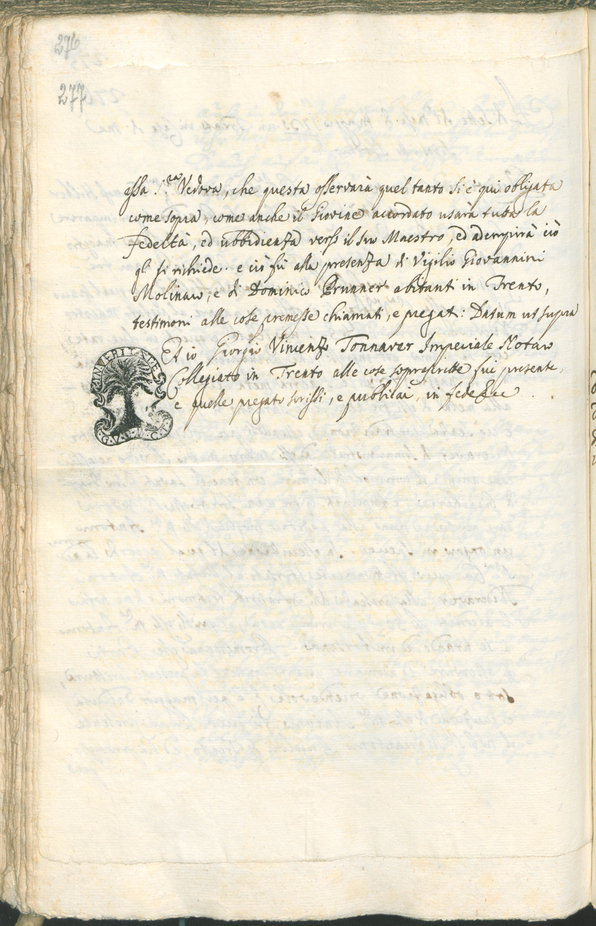 276
277
essa S.ra Vedova, che questa osservarà quel tanto si è qui obligata
come sopra, come anche il Giovine accordato usarà tutta la
fedeltà, ed ubbidienza verso il suo Maestro, ed adempirà ciò
gli si richiede, e ciò fù alla presenza di Vigilio Giovannini
Molinaro, e di Dominico Brunner abitanti in Trento,
testimoni alle cose premesse chiamati, e pregati: Datum ut supra
Et io Giorgio Vincenzo Tonnaver Imperiale Notaro
Collegiato in Trento alle cose soprascritte fui presente,
e quelle pregato scrissi, e publicai, in fede &c